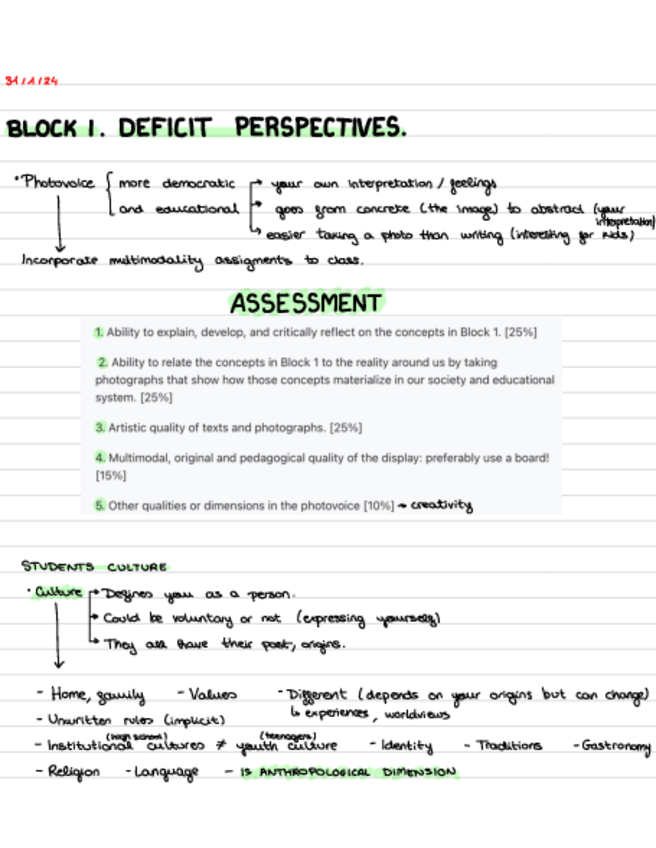 31/1/24
BLOCK 1. DEFICIT PERSPECTIVES.
· Photovoice { more democratic → your own interpretation / feelings
and educational → goes from concrete (the image) to abstract (your interpretation)
→ easier taking a photo than writing (interesting for kids)
Incorporate multimodality assigments to class.
ASSESSMENT
1. Ability to explain, develop, and critically reflect on the concepts in Block 1. [25%]
2. Ability to relate the concepts in Block 1 to the reality around us by taking
photographs that show how those concepts materialize in our society and educational
system. [25%]
3. Artistic quality of texts and photographs. [25%]
4. Multimodal, original and pedagogical quality of the display: preferably use a board!
[15%]
5. Other qualities or dimensions in the photovoice [10%] → creativity
STUDENTS CULTURE
· Culture → Defines you as a person.
→ Could be voluntary or not (expressing yourself)
→ They all have their past, origins.
- Home, family - Values - Different (depends on your origins but can change)
- Unwritten rules (implicit) ↳ experiences, worldviews
(high school) (teenagers)
- Institutional cultures ≠ youth culture - Identity - Traditions - Gastronomy
- Religion - Language - IS ANTHROPOLOGICAL DIMENSION